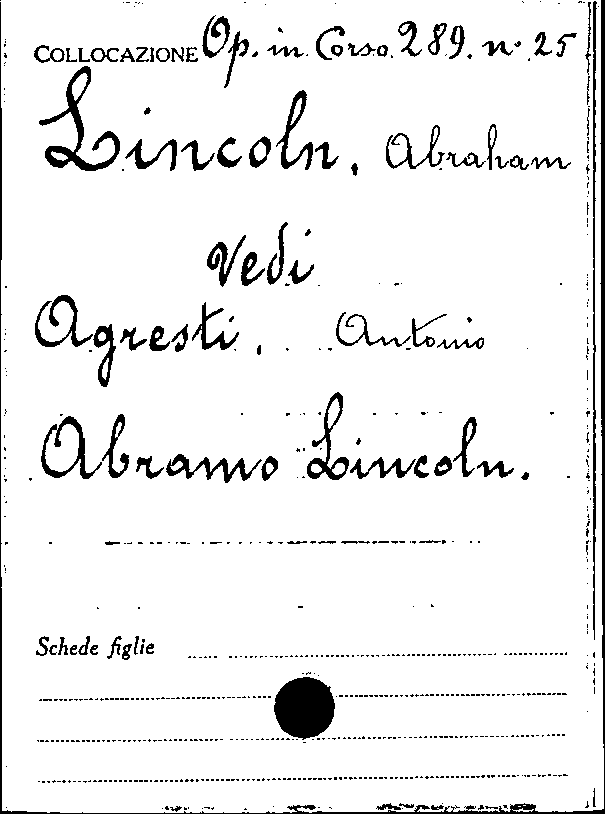 COLLOCAZIONE Op. in Corso. 289. n. 25
Lincoln, Abraham
Vedi
Agresti, Antonio
Abramo Lincoln.
Schede figlie